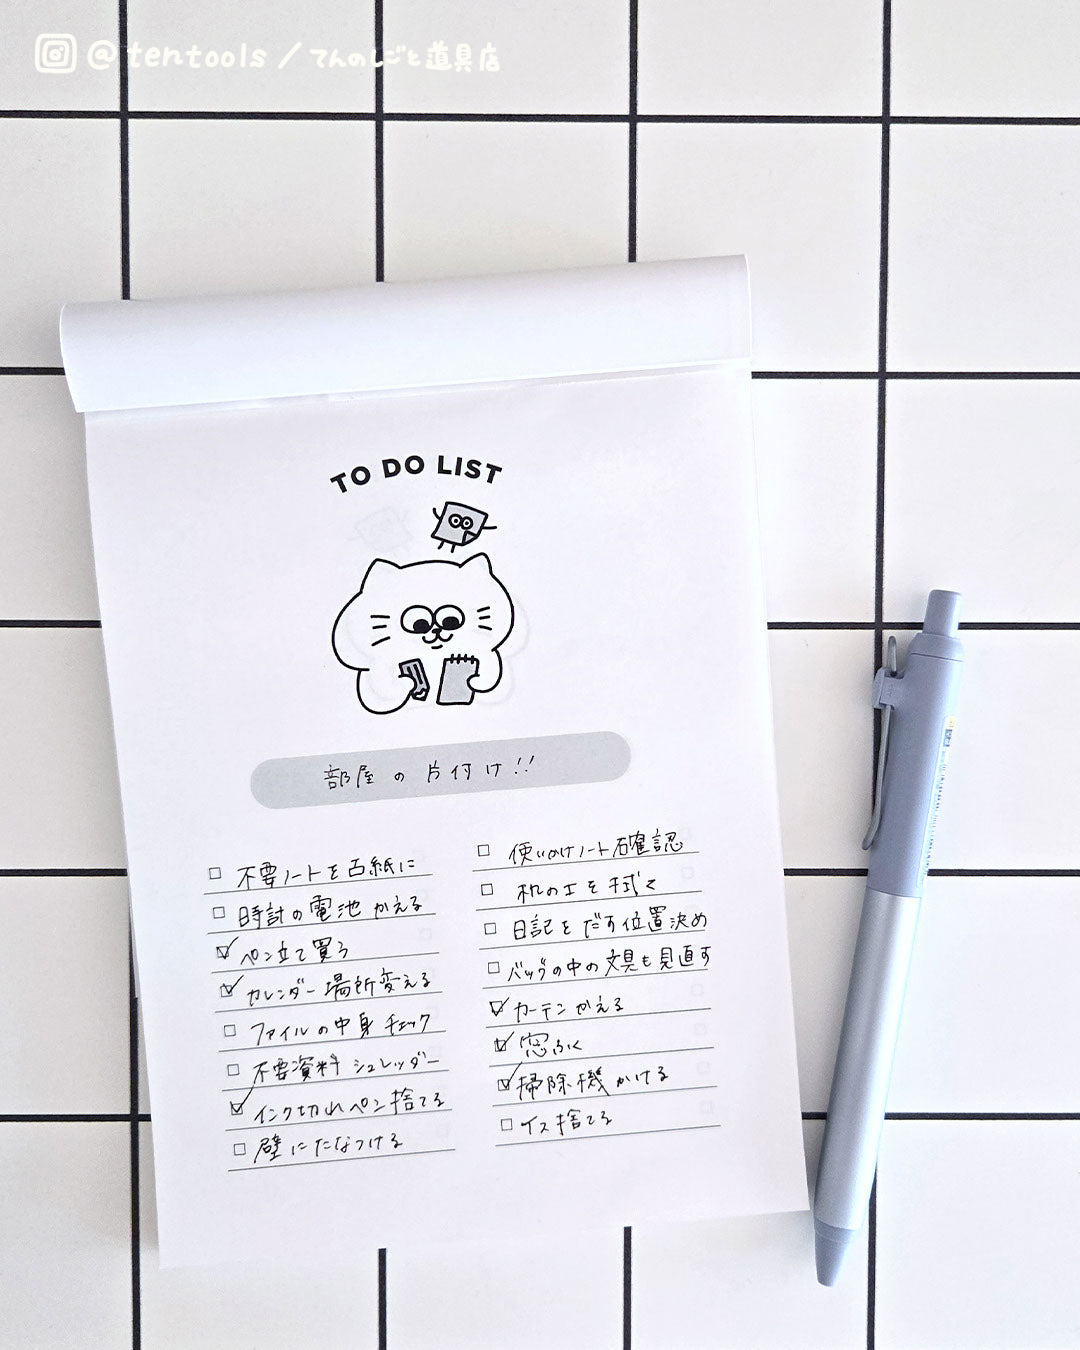 @tentools / てんのしごと道具店
TO DO LIST
部屋の片付け!!
不要ノートを古紙に
時計の電池かえる
ペン立て買う
カレンダー場所変える
ファイルの中身チェック
不要資料シュレッダー
インク切れペン捨てる
壁にたなつける
使いかけノート確認
机の上を拭く
日記をだす位置決め
バッグの中の文具も見直す
カーテンかえる
窓ふく
掃除機かける
イス捨てる